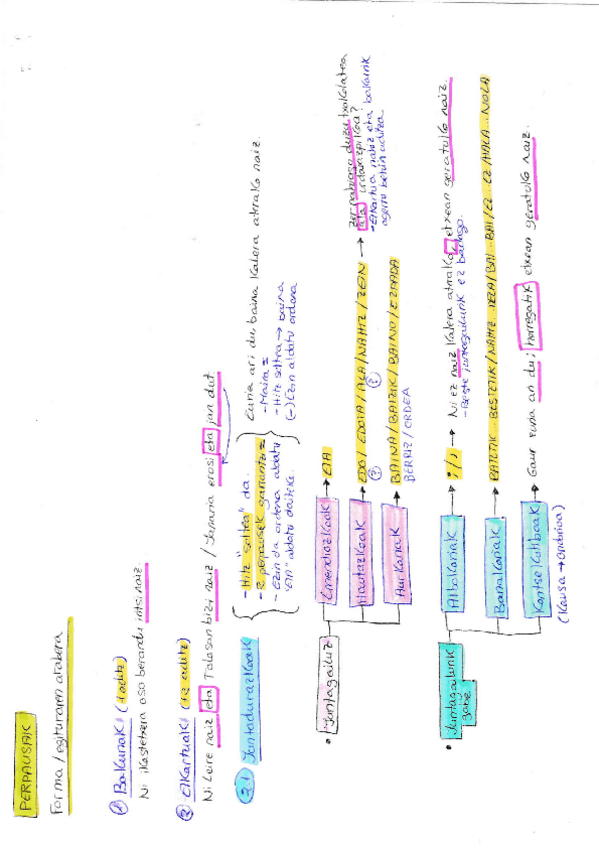 PERPAUSAK
Forma / egituraren arabera
① Bakunak (1 aditz)
Ni ikastetxera oso berandu iritsi naiz
② Elkartuak (+2 aditz)
Ni Leire naiz eta Tolosan bizi naiz / Jamaria erosi eta jan dut.
2.1 Juntadurazkoak
- Hitz "soltea" da.
- 2 perpausek garrantzi =
- Ezin da ordena aldatu
"ETA" aldatu daiteke.
Euria ari du, baina kalera aterako naiz.
- Maila =
- Hitz soltea → baina
(-) Ezin aldatu ordena
• Juntagailuz
Emendiozkoak → ETA
Hautazkoak → EDO / EDOTA / ALA / NAHIZ / ZEIN →
Zer nahiago duzu txokolatea
ala urdaiazpikoa?
- Elkartua nahiz eta bakarrik
agertu behin aditza
Aurkariak → BAINA / BAIZIK / BAINO / EZPADA
BERRIZ / ORDEA
• Juntagailurik gabe
Albokariak → ; / , → Ni ez naiz kalera aterako, etxean geratuko naiz.
- Beste juntagailurik ez badago.
Banakariak → BATETIK.. BESTETIK / NAHIZ.. / BAI.. BAI / EZ.. EZ / NOLA.. NOLA
Kontsekutiboak → Gaur euria ari du; horregatik etxean geratuko naiz.
(Kausa → ondorioa)